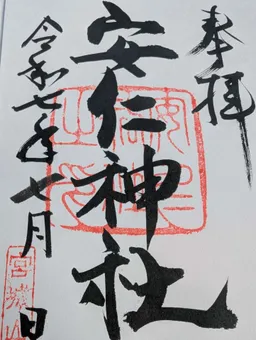 奉拝
安仁神社
令和七年七月 日
宮城山